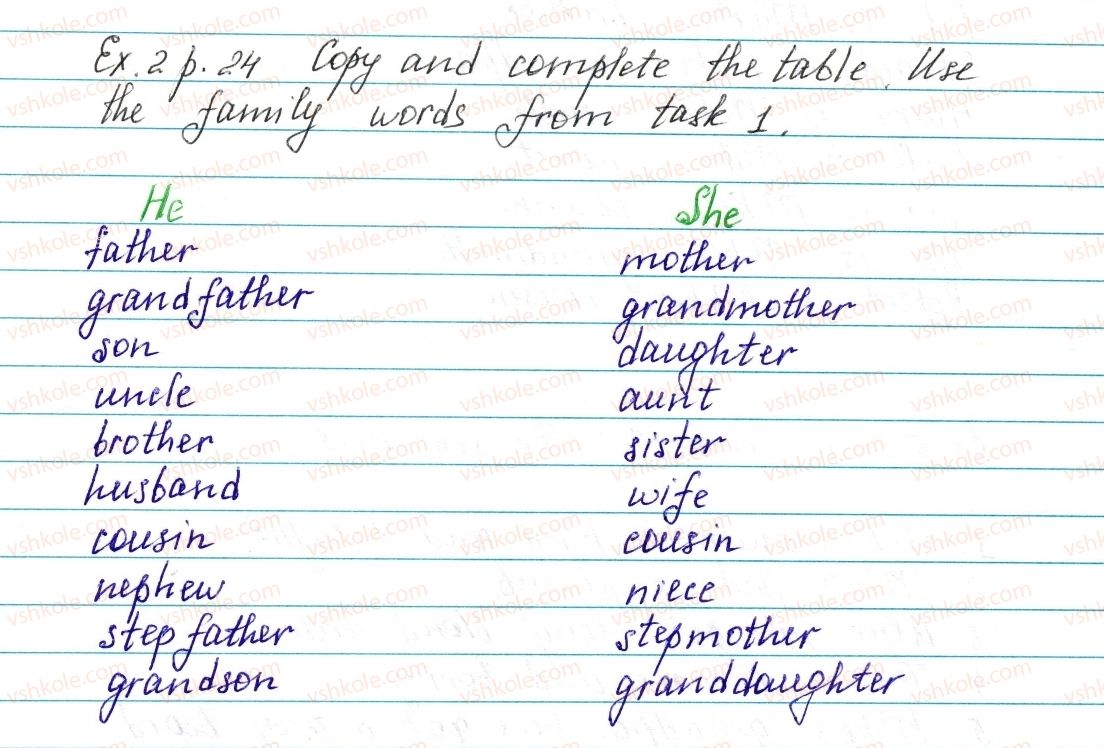 Ex. 2 p. 24 Copy and complete the table. Use
the family words from task 1.
He She
father mother
grandfather grandmother
son daughter
uncle aunt
brother sister
husband wife
cousin cousin
nephew niece
stepfather stepmother
grandson granddaughter
vshkole.com